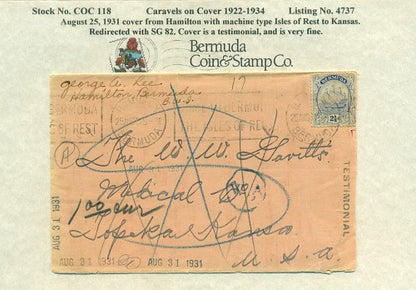 Stock No. COC 118 Caravels on Cover 1922-1934 Listing No. 4737
August 25, 1931 cover from Hamilton with machine type Isles of Rest to Kansas.
Redirected with SG 82. Cover is a testimonial, and is very fine.
Bermuda
Coin & Stamp Co.
George A. Lee
Hamilton, Bermuda
B.W.I.
17
OF REST
BERMUDA
THE ISLES OF RE
BERMUDA
2½
A
The W. W. Gavitts
Medical Co
Topeka Kansas
U.S.A.
AUG 31 1931
AUG 31 1931
AUG 31 1931
TESTIMONIAL